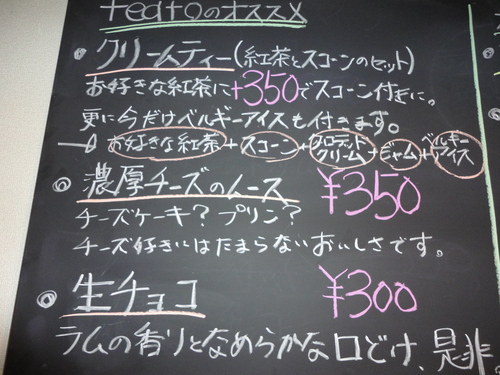 teatoのオススメ
クリームティー(紅茶とスコーンのセット)
お好きな紅茶に+350でスコーン付きに。
更に今だけベルギーアイスも付きます。
→お好きな紅茶+スコーン+クロテッドクリーム+ジャム+ベルギーアイス
◎濃厚チーズのムース ¥350
チーズケーキ?プリン?
チーズ好きにはたまらないおいしさです。
◎生チョコ ¥300
ラムの香りとなめらかな口どけ、是非